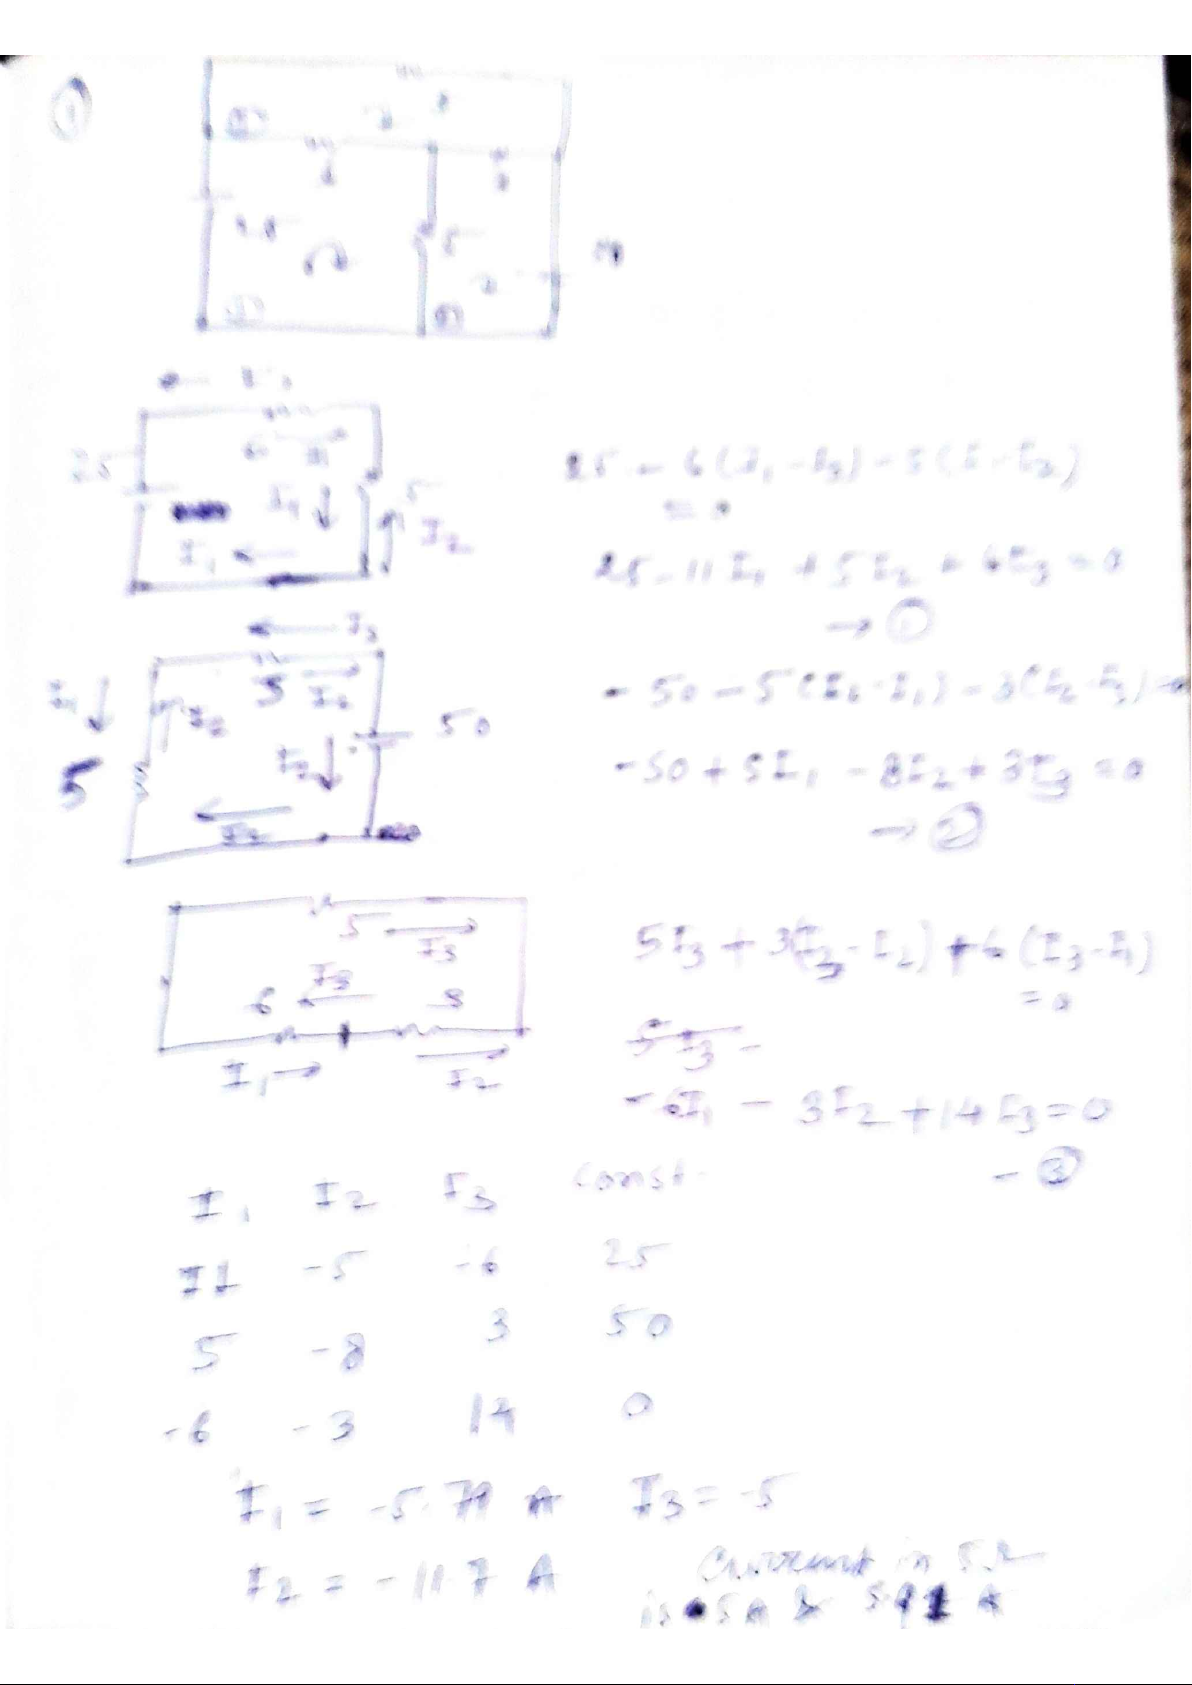 1
5
25
6
5
I1
I2
25 - 6(I1 - I3) - 5(I1 - I2)
= 0
25 - 11I1 + 5I2 + 6I3 = 0
→ 1
I3
3
I2
50
5
I2
- 50 - 5(I2 - I1) - 3(I2 - I3) = 0
-50 + 5I1 - 8I2 + 3I3 = 0
→ 2
5
I3
I3
6
3
I1 →
I2
5I3 + 3(I3 - I2) + 6(I3 - I1)
= 0
5I3 -
-6I1 - 3I2 + 14I3 = 0
- 3
I1 I2 I3 const.
11 -5 -6 25
5 -8 3 50
-6 -3 14 0
I1 = -5.79 A I3 = -5
I2 = -11.7 A
Current in 5Ω
is 5A & 5.91 A